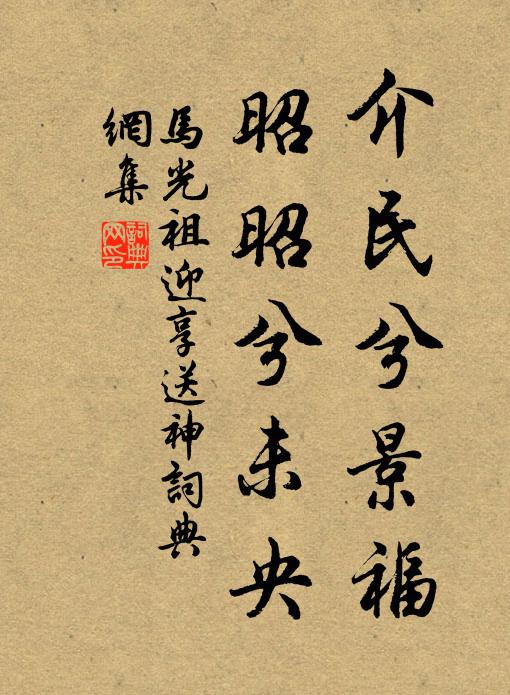 介民兮景福
昭昭兮未央
馬光祖迎享送神詞典
網集
詞典網印